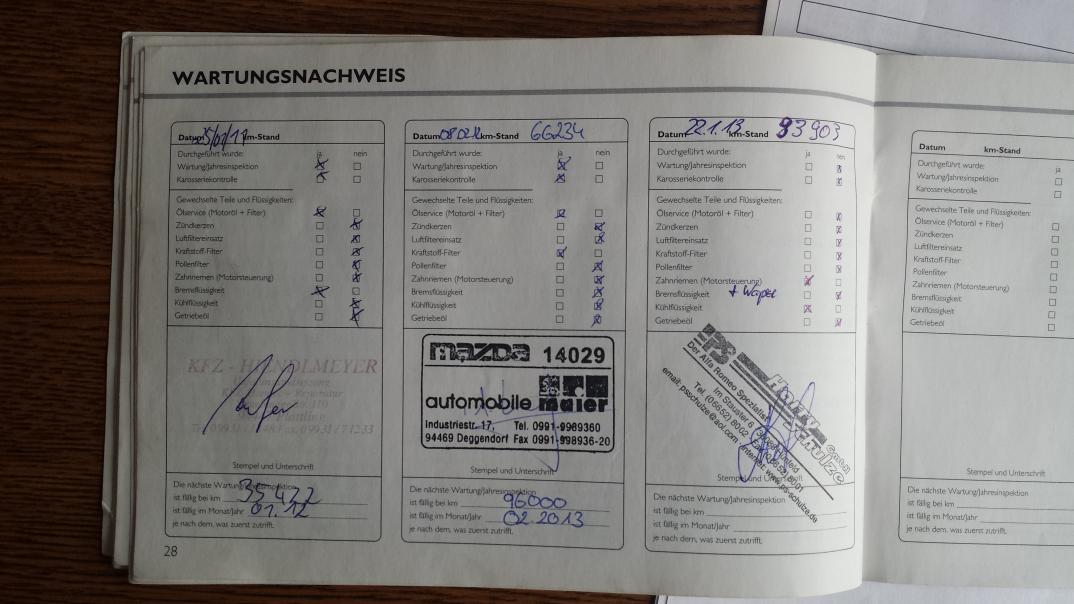 WARTUNGSNACHWEIS
Datum km-Stand
Durchgeführt wurde: ja nein
Wartung/Jahresinspektion
Karosseriekontrolle
Gewechselte Teile und Flüssigkeiten:
Ölservice (Motoröl + Filter)
Zündkerzen
Luftfiltereinsatz
Kraftstoff-Filter
Pollenfilter
Zahnriemen (Motorsteuerung)
Bremsflüssigkeit
Kühlflüssigkeit
Getriebeöl
KFZ - HENDLMEYER
Stempel und Unterschrift
Die nächste Wartung/Jahresinspektion
ist fällig bei km 35 422
ist fällig im Monat/Jahr 01.12
je nach dem, was zuerst zutrifft.
28
Datum 08 02 12 km-Stand 66234
Durchgeführt wurde: ja nein
Wartung/Jahresinspektion
Karosseriekontrolle
Gewechselte Teile und Flüssigkeiten:
Ölservice (Motoröl + Filter)
Zündkerzen
Luftfiltereinsatz
Kraftstoff-Filter
Pollenfilter
Zahnriemen (Motorsteuerung)
Bremsflüssigkeit
Kühlflüssigkeit
Getriebeöl
mazda 14029
automobile maier
Industriestr. 17, Tel. 0991-9989360
94469 Deggendorf Fax 0991-998936-20
Stempel und Unterschrift
Die nächste Wartung/Jahresinspektion
ist fällig bei km 96000
ist fällig im Monat/Jahr 02.2013
je nach dem, was zuerst zutrifft.
Datum 22.1.13 km-Stand 93903
Durchgeführt wurde: ja nein
Wartung/Jahresinspektion
Karosseriekontrolle
Gewechselte Teile und Flüssigkeiten:
Ölservice (Motoröl + Filter)
Zündkerzen
Luftfiltereinsatz
Kraftstoff-Filter
Pollenfilter
Zahnriemen (Motorsteuerung)
Bremsflüssigkeit + Wapu
Kühlflüssigkeit
Getriebeöl
PS
Der Alfa Romeo Spezialist
Tel. (06652) 8002
email: psschulze@aol.com · internet: www.ps-schulze.de
Stempel und Unterschrift
Die nächste Wartung/Jahresinspektion
ist fällig bei km
ist fällig im Monat/Jahr
je nach dem, was zuerst zutrifft.
Datum km-Stand
Durchgeführt wurde: ja
Wartung/Jahresinspektion
Karosseriekontrolle
Gewechselte Teile und Flüssigkeiten:
Ölservice (Motoröl + Filter)
Zündkerzen
Luftfiltereinsatz
Kraftstoff-Filter
Pollenfilter
Zahnriemen (Motorsteuerung)
Bremsflüssigkeit
Kühlflüssigkeit
Getriebeöl
Stempel und Unterschrift
Die nächste Wartung/Jahresinspektion
ist fällig bei km
ist fällig im Monat/Jahr
je nach dem, was zuerst zutrifft.